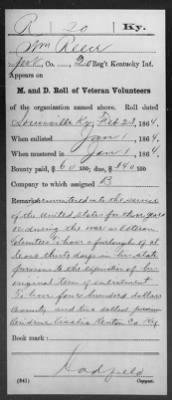 R 20 Ky.
Wm Reece
, Co. , 20 Reg't Kentucky Inf.
Appears on
M. and D. Roll of Veteran Volunteers
of the organization named above. Roll dated
Louisville Ky, Feb 23, 1864.
When enlisted Jan 1, 1864.
When mustered in Jan 1, 1864.
Bounty paid, $ 60 /100; due, $ 340 /100
Company to which assigned B
Remarks: mustered into the service
of the United States for three years
or during the war as Veteran
Volunteers to have a furlough of at
least thirty days in his state
previous to the expiration of his
original term of enlistment
To have four hundred dollars
bounty and
Residence Visalia Kenton Co. Ky
Book mark:
Hadfield
(841) Copyist.